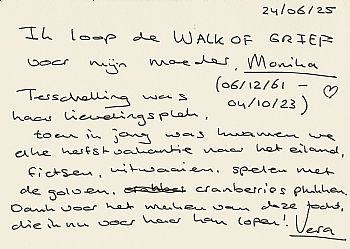 24/06/25
Ik loop de WALK OF GRIEF
voor mijn moeder, Monika
(06/12/61 –
04/10/23) ♡
Terschelling was
haar lievelingsplek,
toen ik jong was kwamen we
elke herfstvakantie naar het eiland,
fietsen, uitwaaien, spelen met
de golven, cranberries plukken.
Dank voor het maken van deze tocht,
die ik nu voor haar kan lopen! Vera